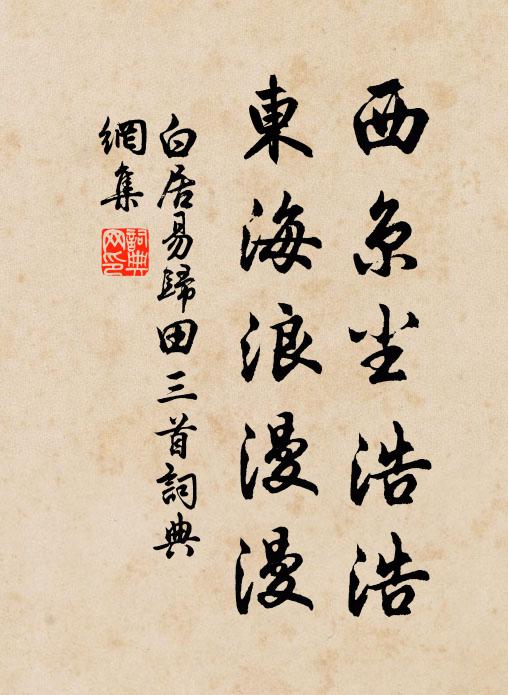 西京尘浩浩
東海浪漫漫
白居易歸田三首詞典
網集
詞典
网印